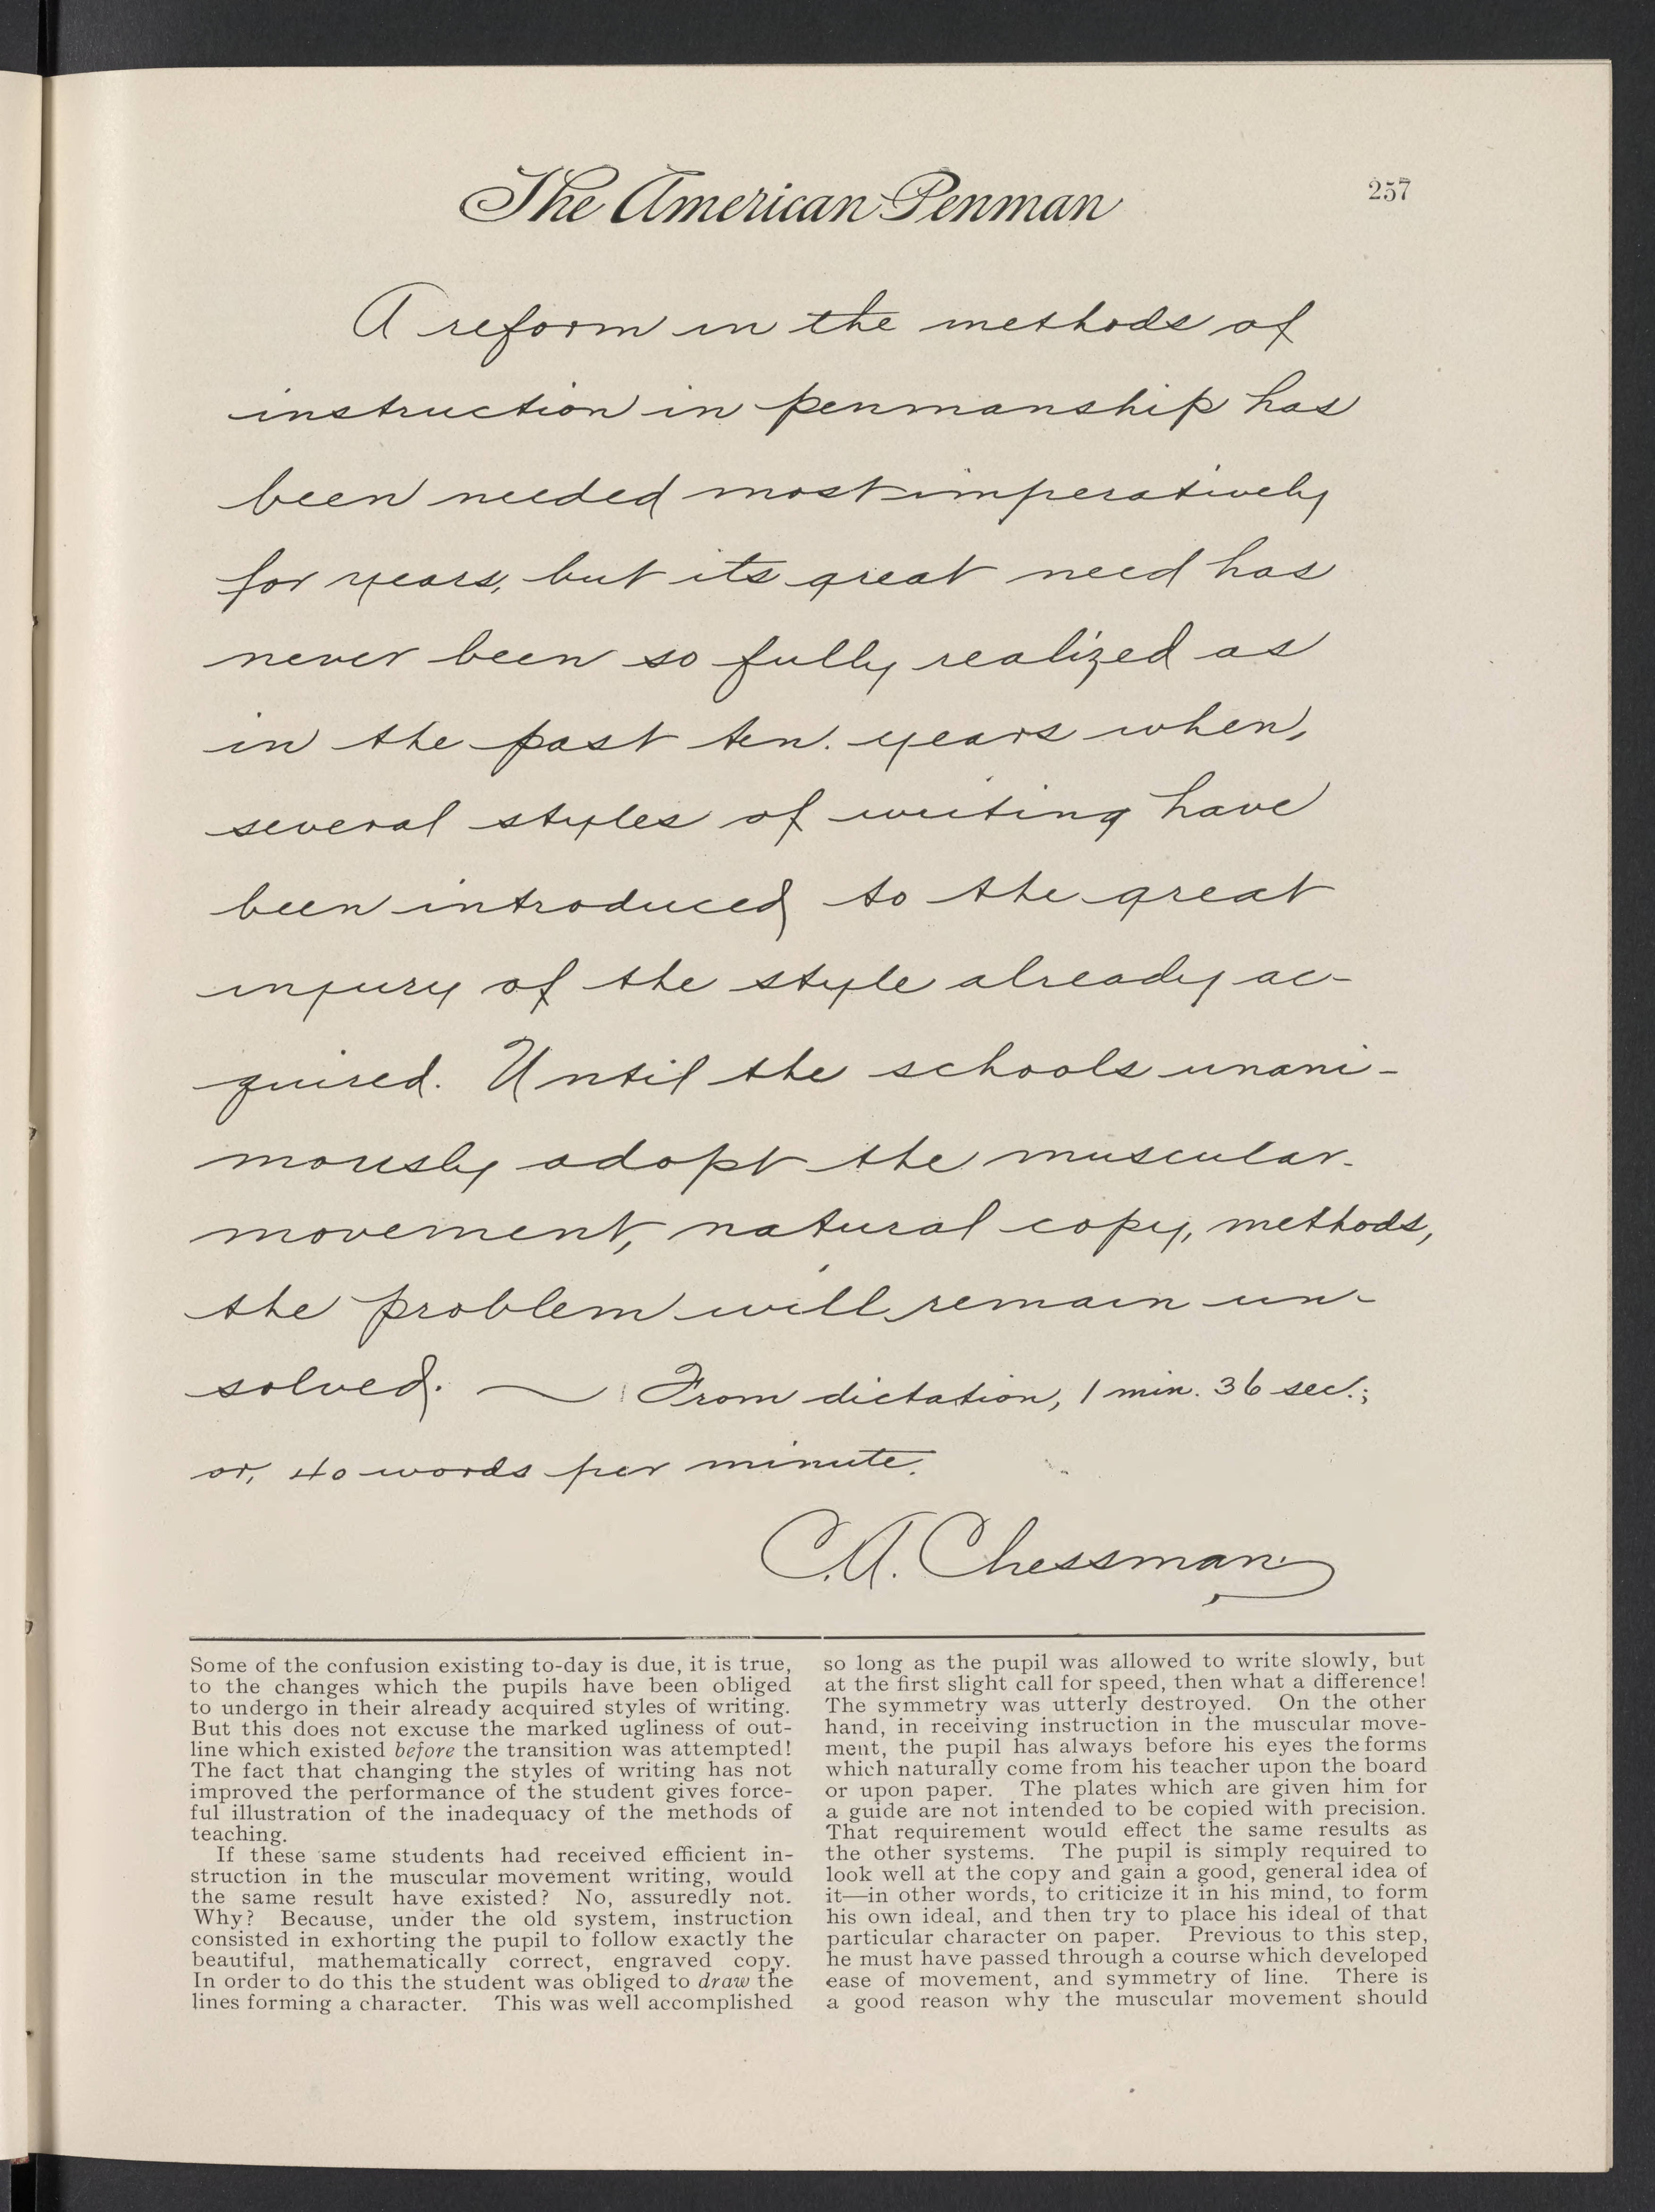 The American Penman
257
A reform in the methods of
instruction in penmanship has
been needed most imperatively
for years, but its great need has
never been so fully realized as
in the past ten. years when,
several styles of writing have
been introduced to the great
injury of the style already ac-
quired. Until the schools unani-
mously adopt the muscular-
movement, natural copy, methods,
the problem will remain un-
solved. ~ From dictation, 1 min. 36 sec.;
or, 40 words per minute.
C. A. Chessman.
Some of the confusion existing to-day is due, it is true,
to the changes which the pupils have been obliged
to undergo in their already acquired styles of writing.
But this does not excuse the marked ugliness of out-
line which existed before the transition was attempted!
The fact that changing the styles of writing has not
improved the performance of the student gives force-
ful illustration of the inadequacy of the methods of
teaching.
If these same students had received efficient in-
struction in the muscular movement writing, would
the same result have existed? No, assuredly not.
Why? Because, under the old system, instruction
consisted in exhorting the pupil to follow exactly the
beautiful, mathematically correct, engraved copy.
In order to do this the student was obliged to draw the
lines forming a character. This was well accomplished
so long as the pupil was allowed to write slowly, but
at the first slight call for speed, then what a difference!
The symmetry was utterly destroyed. On the other
hand, in receiving instruction in the muscular move-
ment, the pupil has always before his eyes the forms
which naturally come from his teacher upon the board
or upon paper. The plates which are given him for
a guide are not intended to be copied with precision.
That requirement would effect the same results as
the other systems. The pupil is simply required to
look well at the copy and gain a good, general idea of
it—in other words, to criticize it in his mind, to form
his own ideal, and then try to place his ideal of that
particular character on paper. Previous to this step,
he must have passed through a course which developed
ease of movement, and symmetry of line. There is
a good reason why the muscular movement should